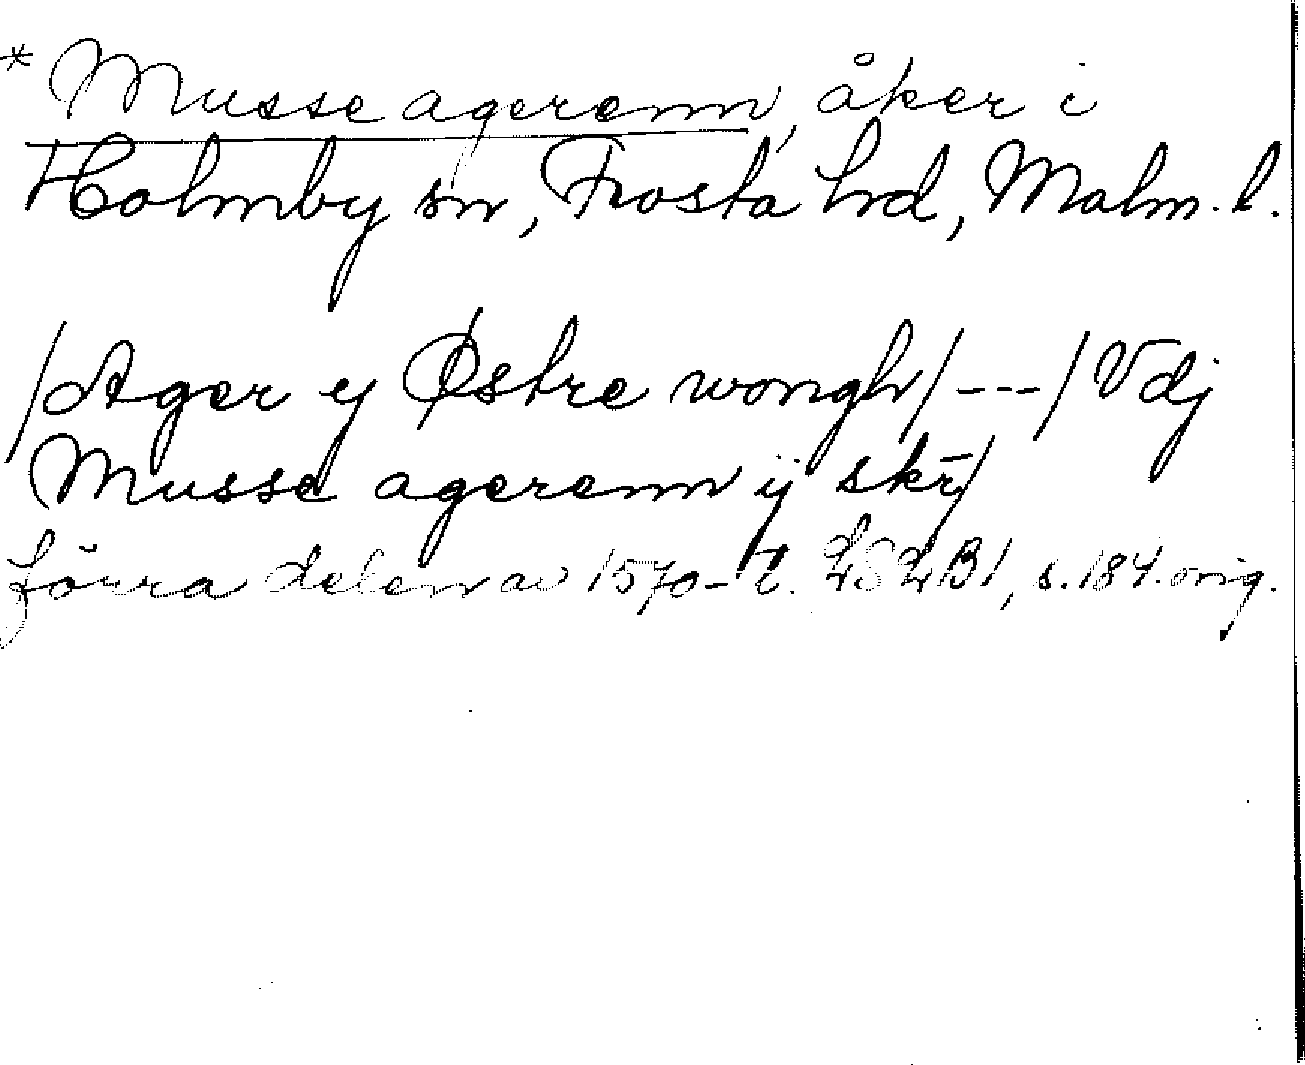 * Musse agerenn, åker i
Holmby sn, Frosta hd, Malm. l.
/Ager y Østre wongh/---/Vdj
Musse agerenn ij skr̄/
förra delen av 1570-t. LSLB1, s. 184. orig.